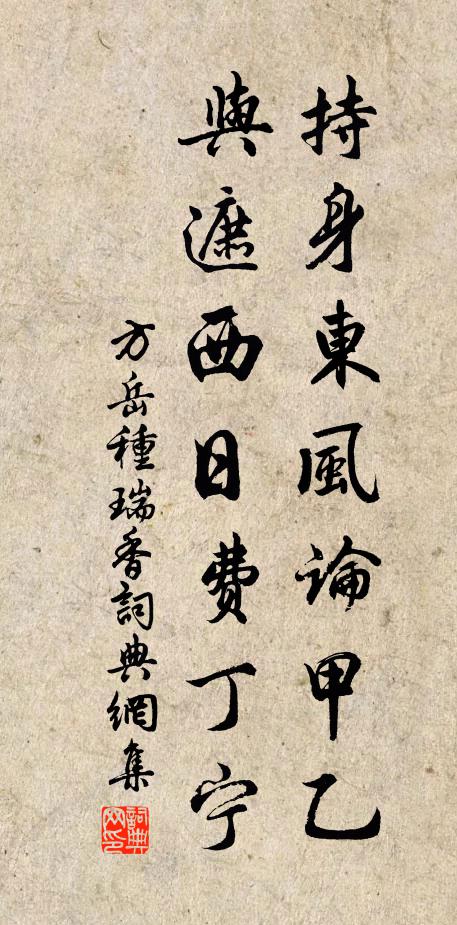 持身東風論甲乙
與遮西日費丁宁
方岳種瑞香詞典網集
詞典网印